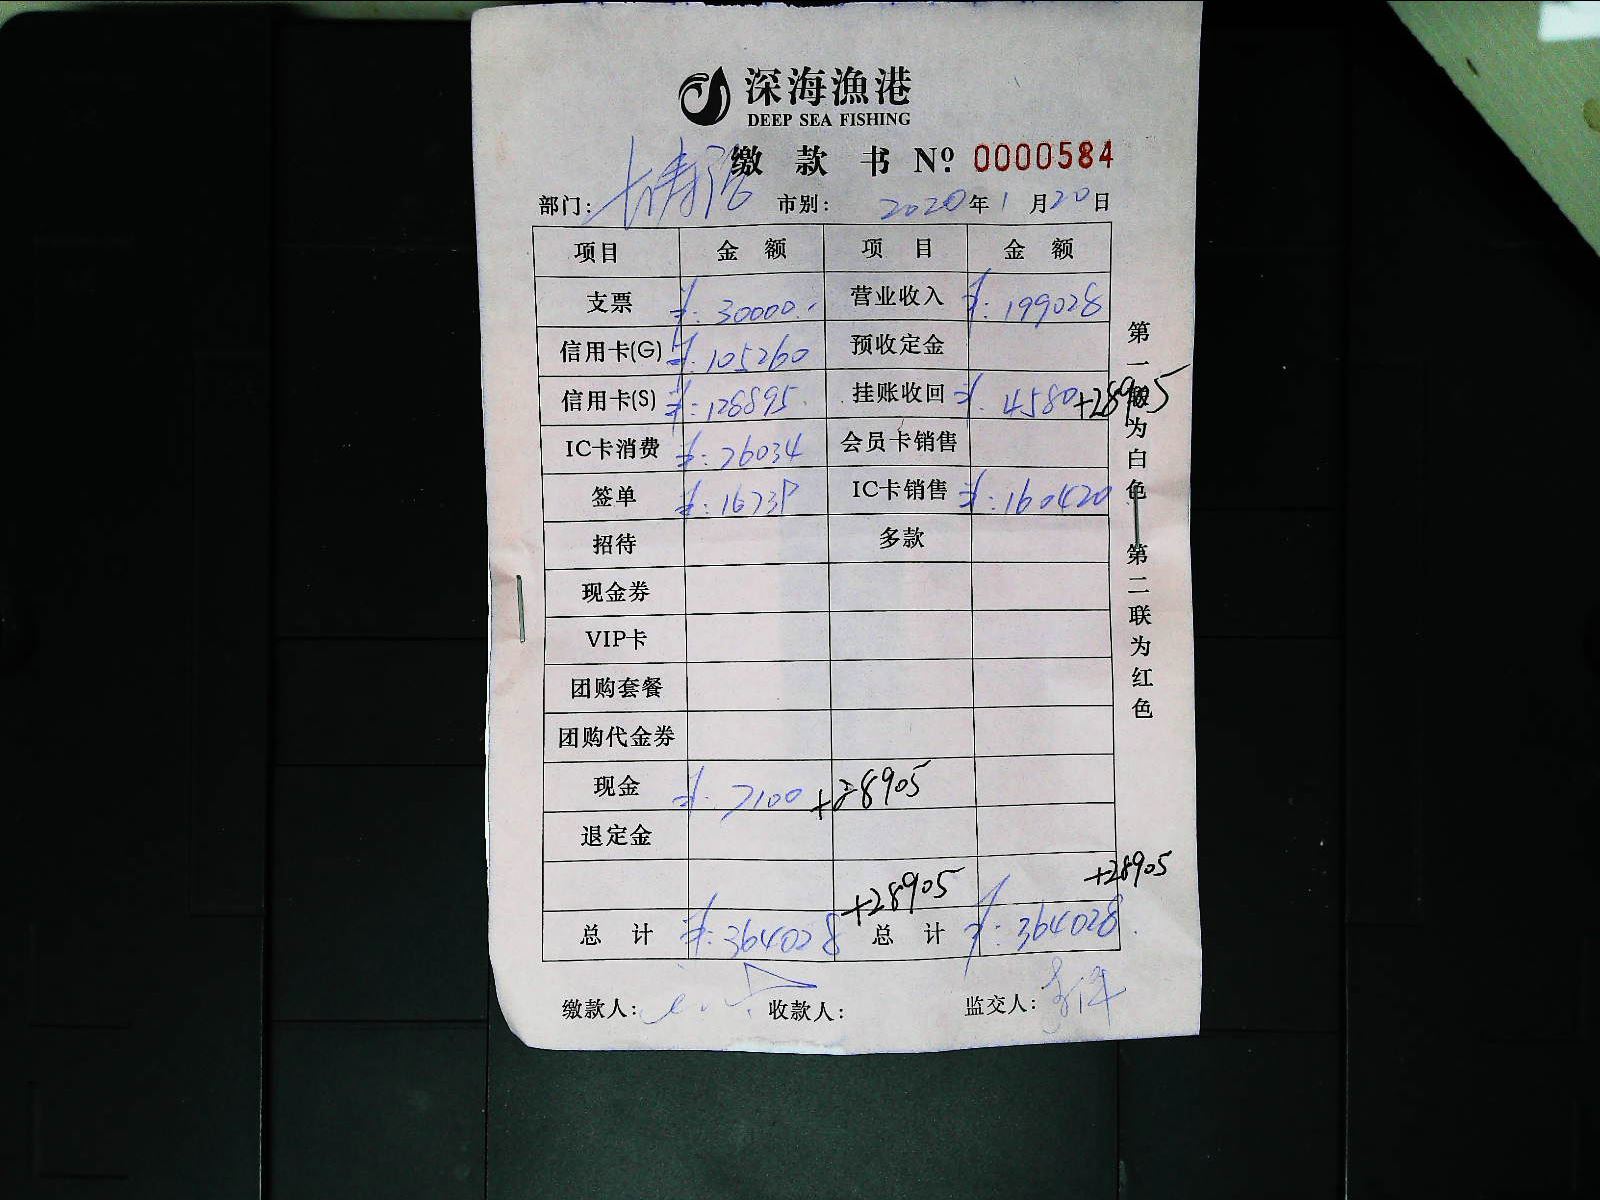 深海漁港
DEEP SEA FISHING
缴款书 Nº: 0000584
部门: 市别: 2020年1月20日
项目 金额 项目 金额
支票 ¥: 30000.- 营业收入 ¥: 199028
信用卡(G) ¥: 105260 预收定金
信用卡(S) ¥: 128895. 挂账收回 ¥: 4580 +28905
IC卡消费 ¥: 26034 会员卡销售
签单 ¥: IC卡销售 ¥: 160420
招待 多款
现金券
VIP卡
团购套餐
团购代金券
现金 ¥: 7100 +28905
退定金
+28905 +28905
总计 ¥: 364028 总计 ¥: 364028.
缴款人: 收款人: 监交人:
第一联为白色 第二联为红色